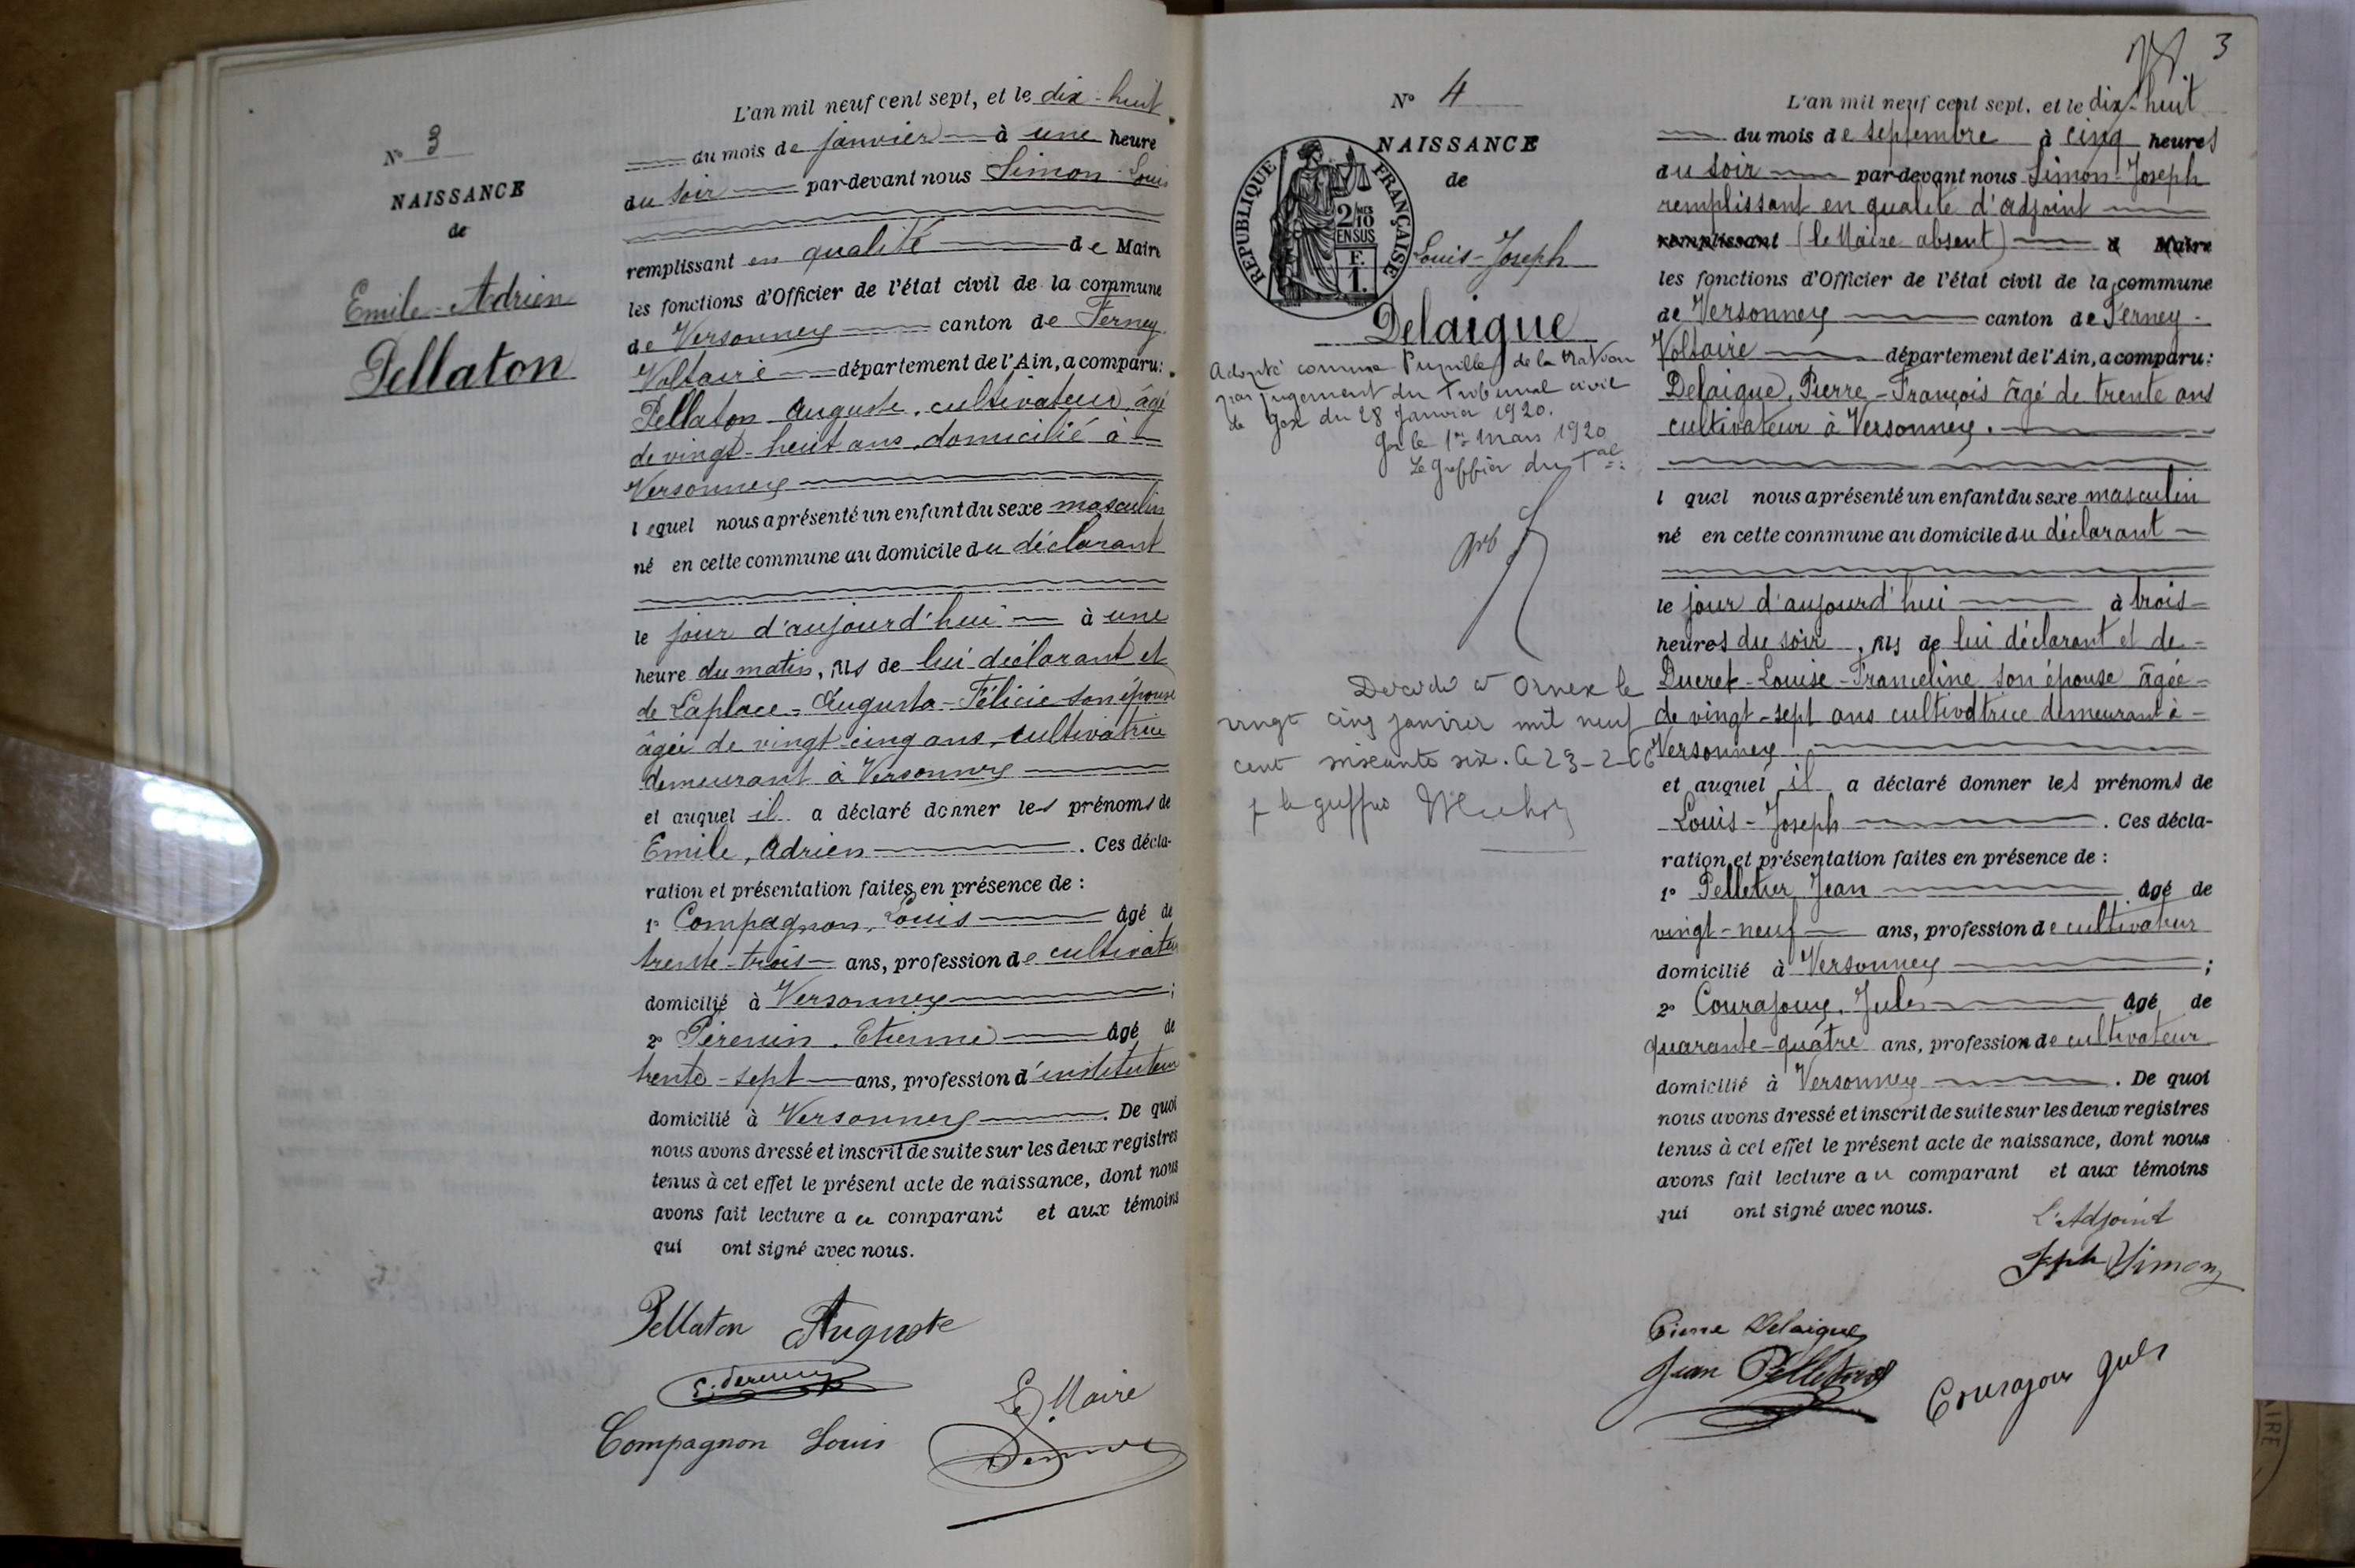 N° 3
NAISSANCE
de
Emile-Adrien
Pellaton
L'an mil neuf cent sept, et le dix-huit
du mois de janvier à une heure
du soir par-devant nous Simon Louis
remplissant en qualité de Maire
les fonctions d'Officier de l'état civil de la commune
de Versonnex canton de Ferney-
Voltaire département de l'Ain, a comparu:
Pellaton Auguste, cultivateur, âgé
de vingt-huit ans, domicilié à
Versonnex
lequel nous a présenté un enfant du sexe masculin
né en cette commune au domicile du déclarant
le jour d'aujourd'hui à une
heure du matin, fils de lui déclarant et
de Laplace-Augusta-Félicie son épouse
âgée de vingt-cinq ans, cultivatrice
demeurant à Versonnex
et auquel il a déclaré donner les prénoms de
Emile, Adrien . Ces décla-
ration et présentation faites en présence de :
1° Compagnon, Louis âgé de
trente-trois ans, profession de cultivateur
domicilié à Versonnex ;
2° Pérenin, Etienne âgé de
trente-sept ans, profession d'instituteur
domicilié à Versonnex . De quoi
nous avons dressé et inscrit de suite sur les deux registres
tenus à cet effet le présent acte de naissance, dont nous
avons fait lecture au comparant et aux témoins
qui ont signé avec nous.
Pellaton Auguste
Le Maire
Compagnon Louis
3
N° 4
NAISSANCE
de
RÉPUBLIQUE FRANÇAISE
2/10 MES
EN SUS
F.
1.
Louis-Joseph
Delaigue
Adopté comme Pupille de la Nation
par jugement du Tribunal civil
de Gex du 28 Janvier 1920.
Gex le 1er Mars 1920
Le Greffier du Tal:
Décédé à Ornex le
vingt cinq janvier mil neuf
cent soixante six. le 23-2-66
L'an mil neuf cent sept, et le dix-huit
du mois de septembre à cinq heures
du soir par-devant nous Simon-Joseph
remplissant en qualité d'adjoint
remplissant (le Maire absent) d Maire
les fonctions d'Officier de l'état civil de la commune
de Versonnex canton de Ferney-
Voltaire département de l'Ain, a comparu:
Delaigue, Pierre-François âgé de trente ans
cultivateur à Versonnex.
l quel nous a présenté un enfant du sexe masculin
né en cette commune au domicile du déclarant
le jour d'aujourd'hui à trois
heures du soir, fils de lui déclarant et de
Ducret-Louise-Franceline son épouse âgée
de vingt-sept ans cultivatrice demeurant à
Versonnex
et auquel il a déclaré donner les prénoms de
Louis-Joseph . Ces décla-
ration et présentation faites en présence de :
1° Pelletier, Jean âgé de
vingt-neuf ans, profession de cultivateur
domicilié à Versonnex ;
2° Courajoux, Jules âgé de
quarante-quatre ans, profession de cultivateur
domicilié à Versonnex . De quoi
nous avons dressé et inscrit de suite sur les deux registres
tenus à cet effet le présent acte de naissance, dont nous
avons fait lecture au comparant et aux témoins
qui ont signé avec nous.
L'Adjoint
Jph Simon
Pierre Delaigue
Jean Pelletier
Courajoux Jules
AIRE